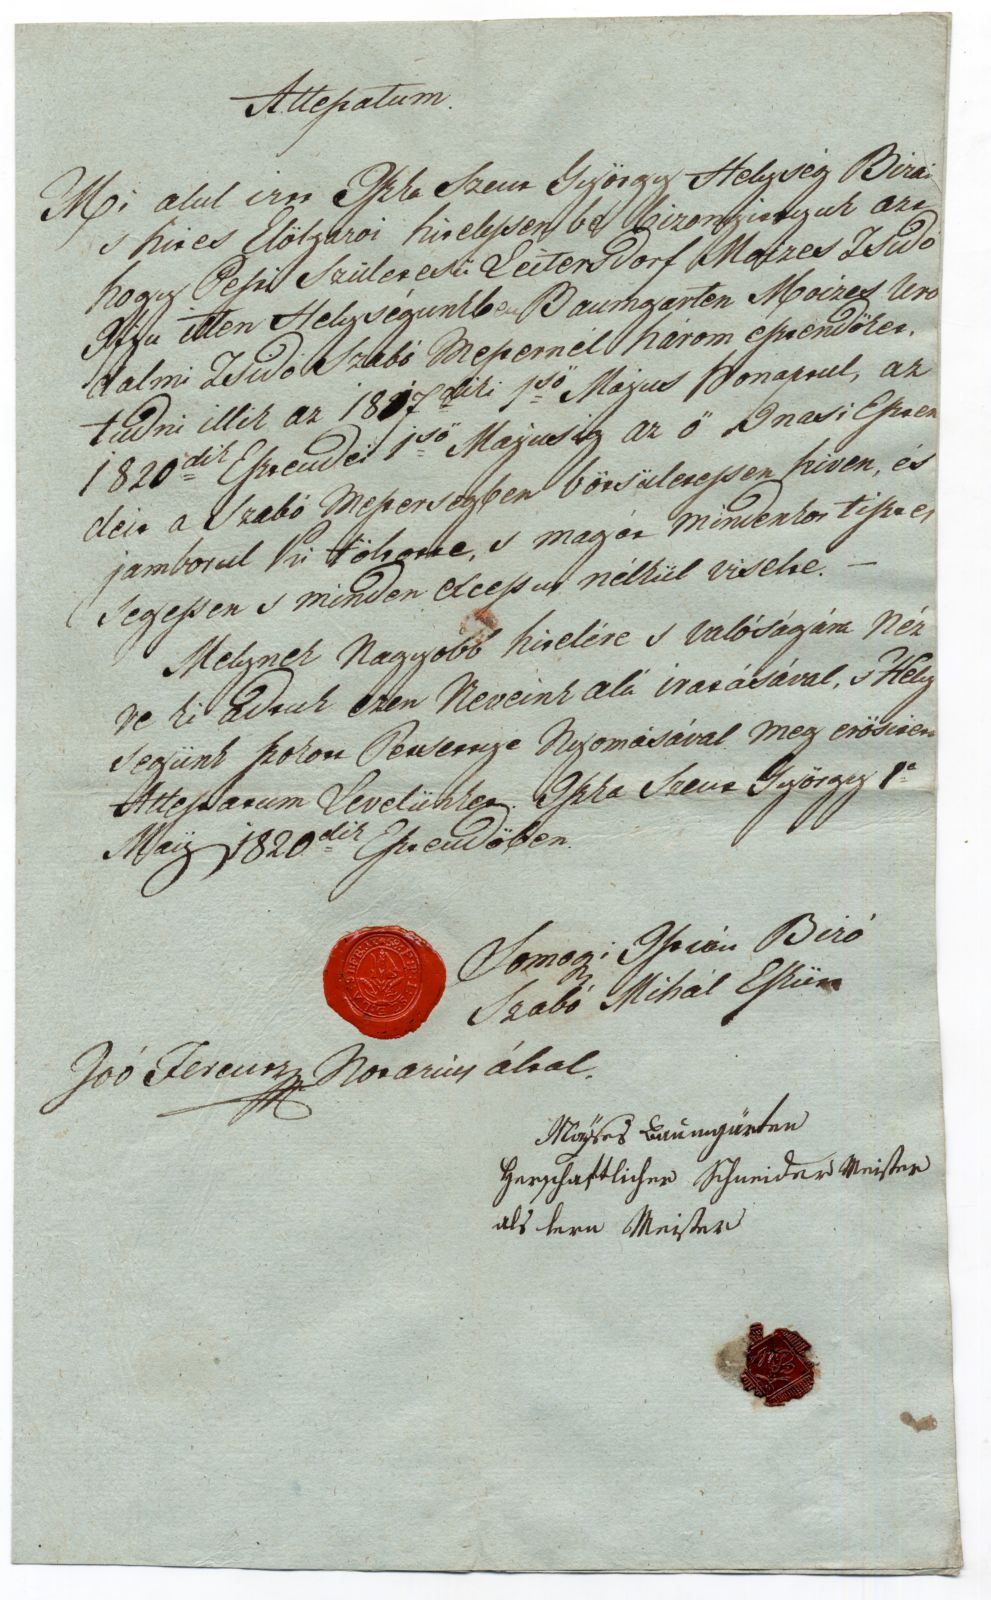 Attestatum.
Mi alul irtt Iszka Szent György Helység Birái
s hites Elöljárói hitelessen bé bizonyittyuk azt
hogy Pesti Születésü Leitersdorf Moizes Zsidó
Ifju itten Helységünkben Baumgarten Moizes Uro
dalmi Zsidó Szabó Mesternél három esztendöket.
tudni illik az 1817diki 1ső Május honaptul, az
1820dik Esztendei 1ső Májusig az ő Inasi Eszten
deit a Szabó Mesterségben bötsületessen hiven, és
jámborul ki töltötte, s magát mindenkor tisztes
segessen s minden excessus nélkül viselte. –
Melynek Nagyobb hitelére s valóságára Néz
ve ki adtuk ezen Neveink alá irattásával, s Hely
ségünk szokott Petsettye Nyomásával meg erösitett
Attestatum Levelünket. Iszka Szent György 1a
Maÿ 1820dik Esztendöben.
Somogyi Istián Biró
Szabó Mihál Esküttt
Joó Ferentz Notarius által.
Moÿses Baumgarten
Herschaftlicher Schneider Meister
als lern Meister